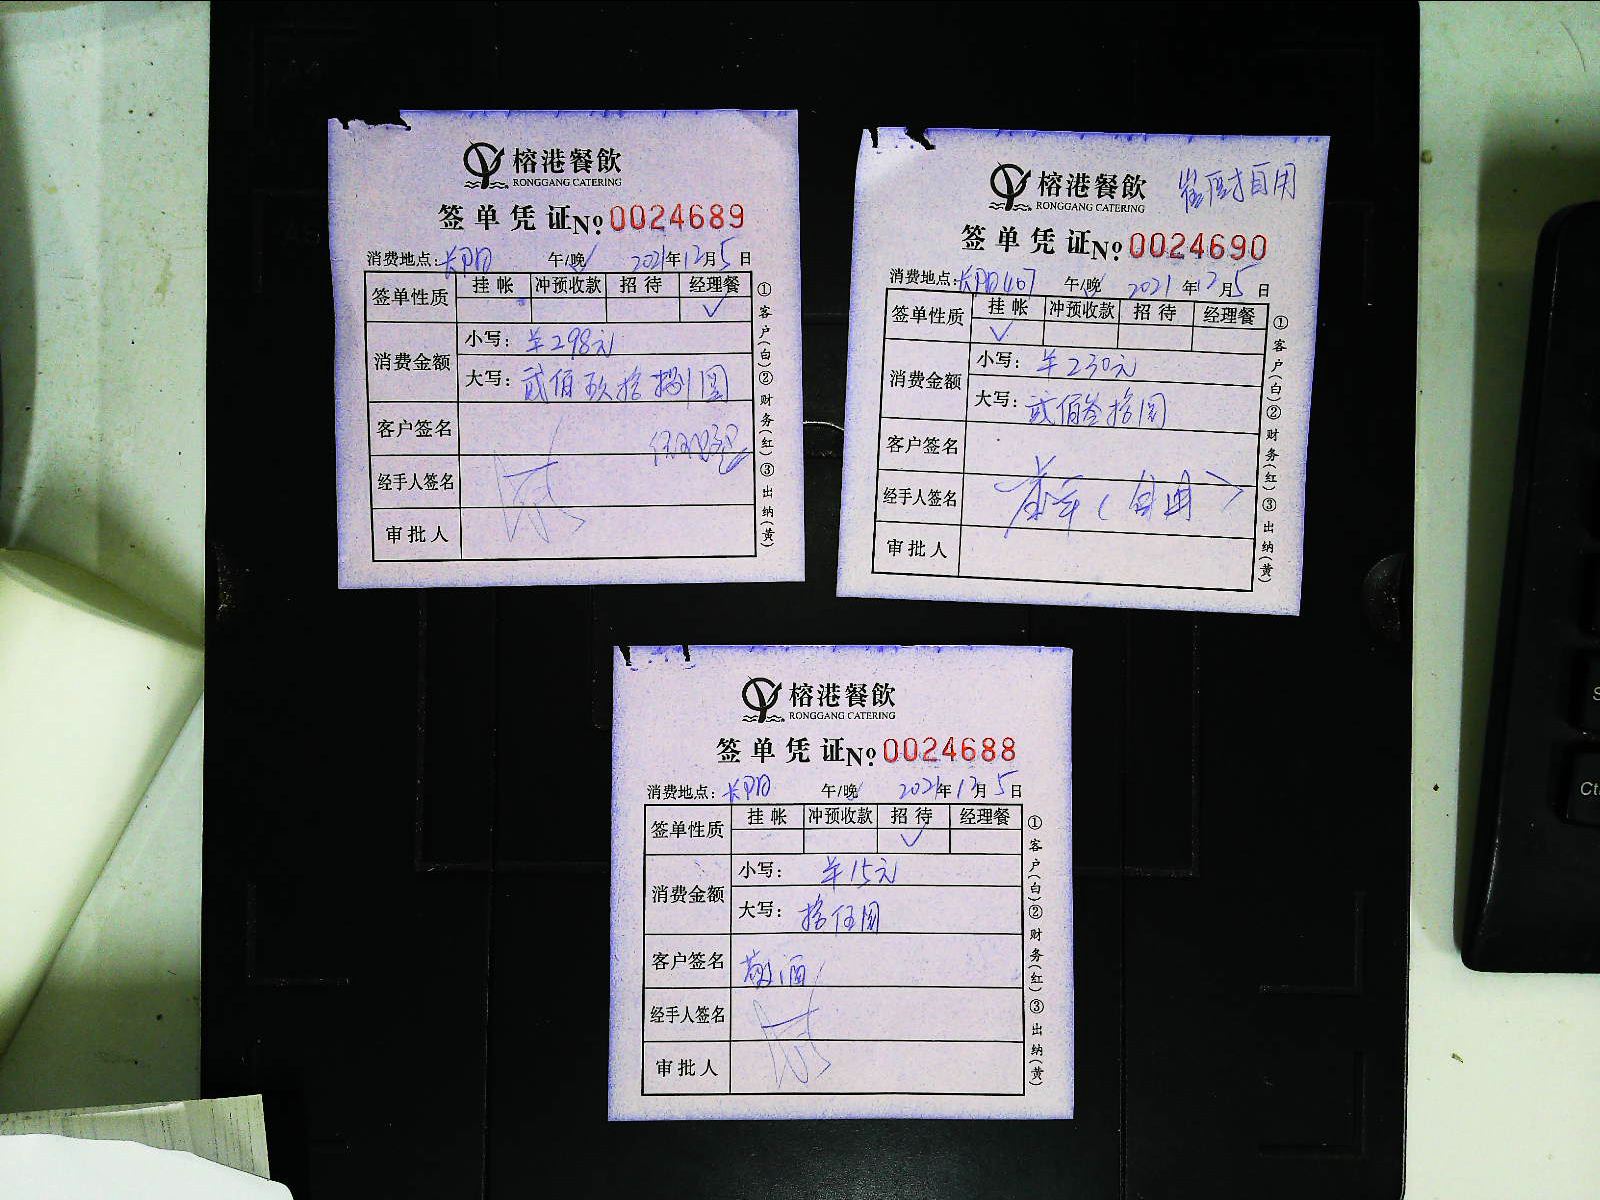 榕港餐飲
RONGGANG CATERING
签单凭证No 0024689
消费地点：长阳 午/晚 2021年12月5日
签单性质 挂帐 冲预收款 招待 经理餐
✓
消费金额 小写：￥298元
大写：贰佰玖拾捌圆
客户签名
经手人签名
审批人
①客户(白)②财务(红)③出纳(黄)
榕港餐飲
RONGGANG CATERING
自用
签单凭证No 0024690
消费地点：长阳407 午/晚 2021年12月5日
签单性质 挂帐 冲预收款 招待 经理餐
✓
消费金额 小写：￥230元
大写：贰佰叁拾圆
客户签名
经手人签名 (自用)
审批人
①客户(白)②财务(红)③出纳(黄)
榕港餐飲
RONGGANG CATERING
签单凭证No 0024688
消费地点：长阳 午/晚 2021年12月5日
签单性质 挂帐 冲预收款 招待 经理餐
✓
消费金额 小写：￥15元
大写：拾伍圆
客户签名 敬酒
经手人签名
审批人
①客户(白)②财务(红)③出纳(黄)